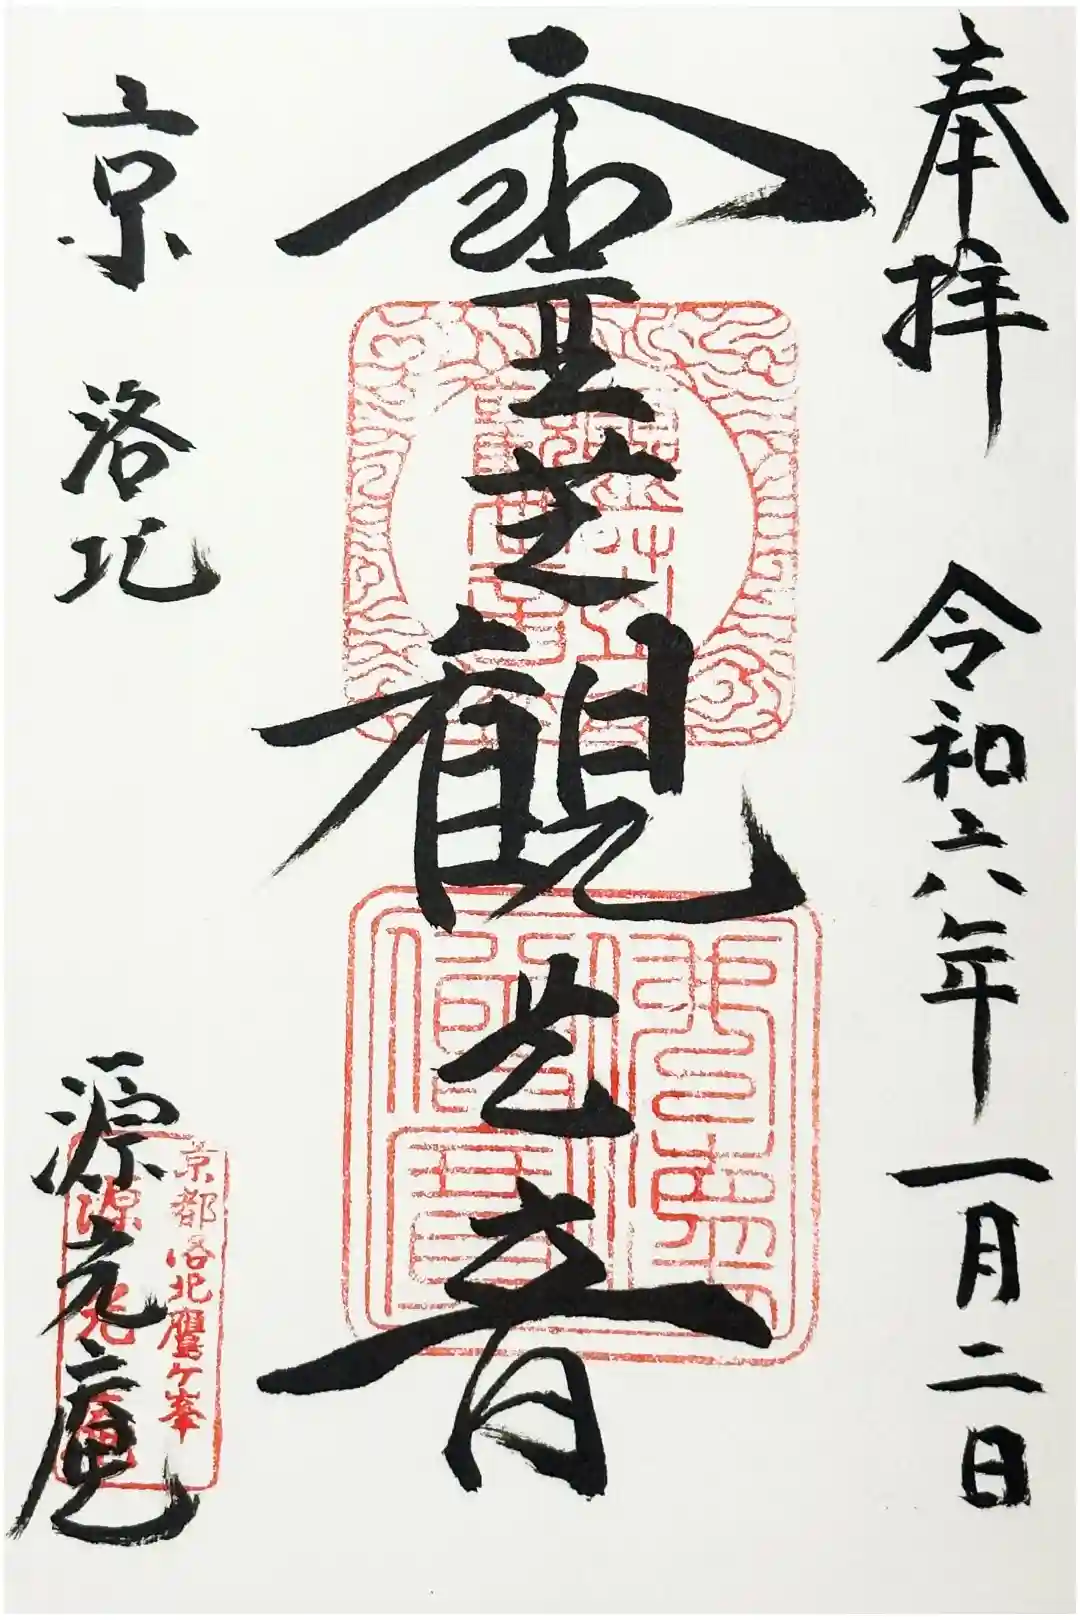 奉拝 令和六年一月二日
霊芝観世音
京 洛北 源光庵
京都洛北鷹ケ峯
源光庵